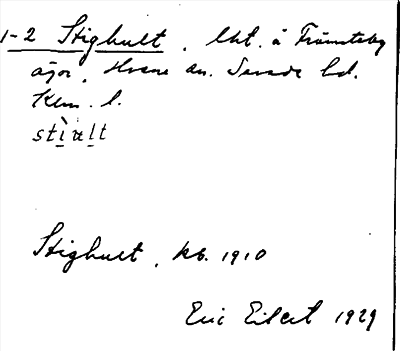 1-2 Stighult, lht. å Främsteby
ägor, Hvena sn. Sevede hd.
Klm. l.
stìult
Stighult, kb. 1910
Eric Eilert 1929